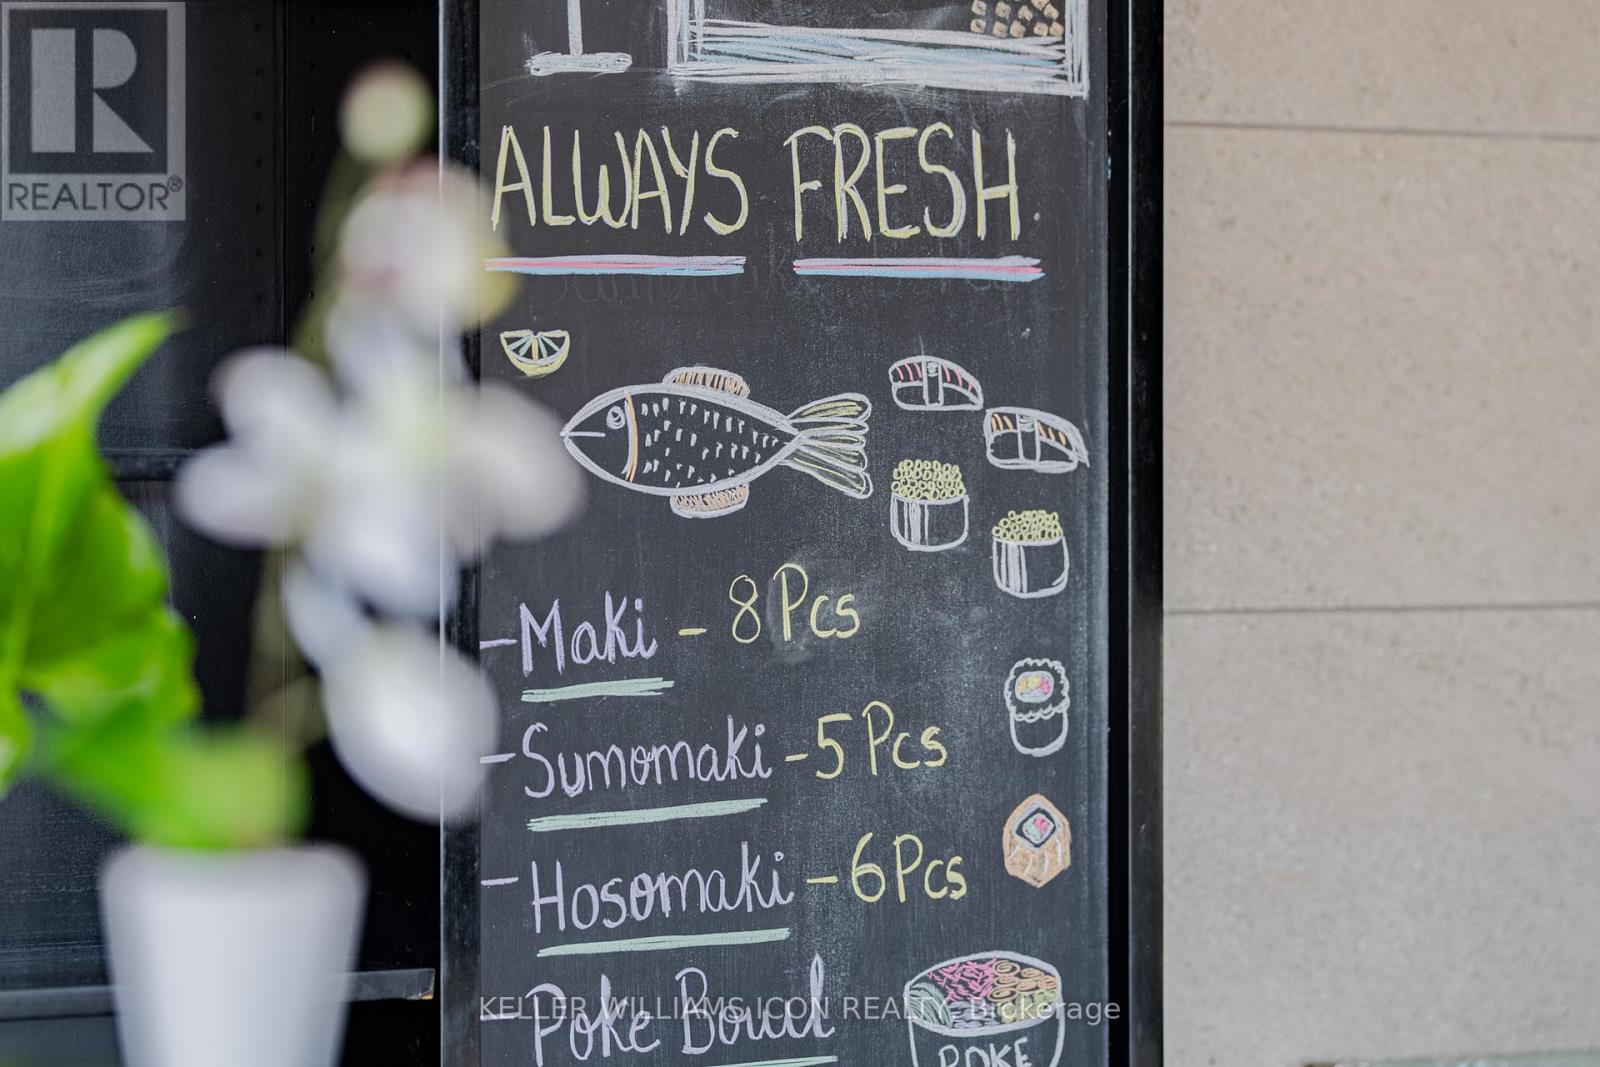 R
REALTOR®
ALWAYS FRESH
-Maki - 8 Pcs
-Sumomaki -5 Pcs
-Hosomaki -6 Pcs
-Poke Bowl
POKE
KELLER WILLIAMS ICON REALTY, Brokerage